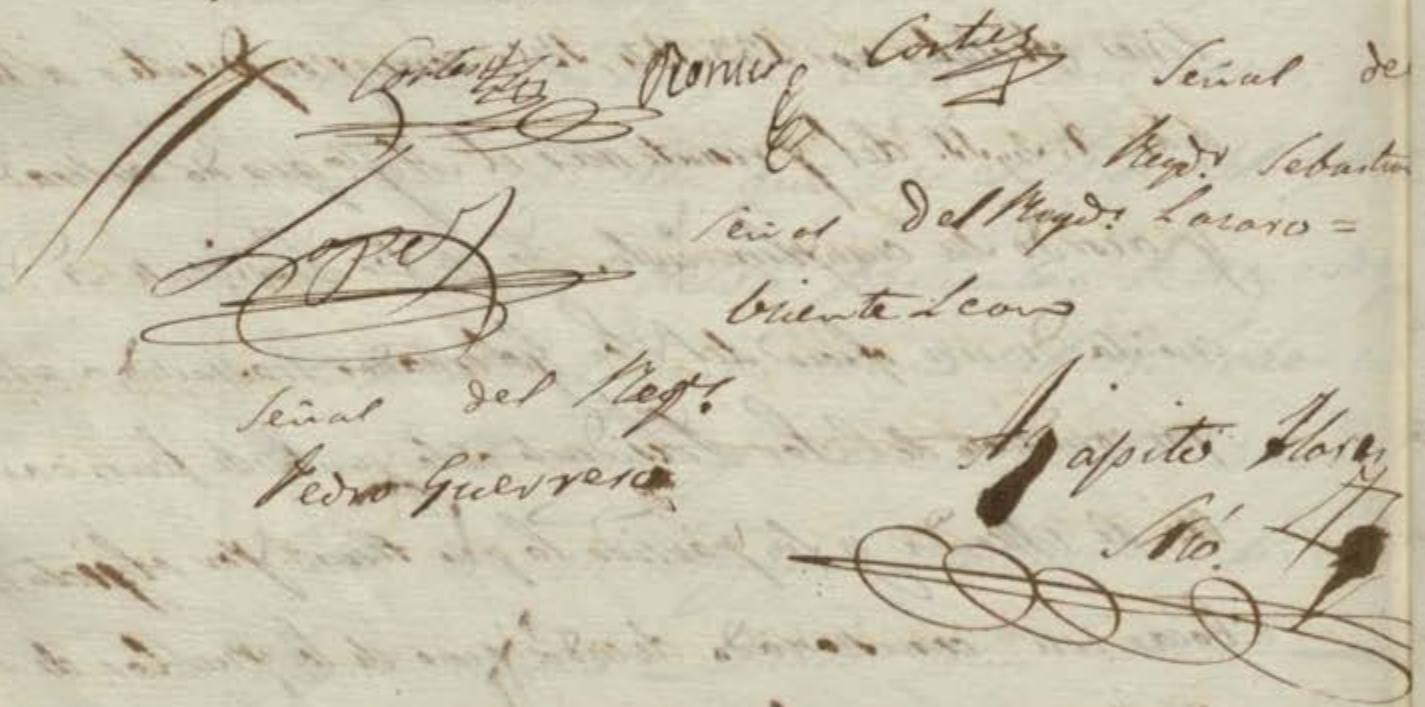 Cortes Cortes Señal de
Regdr. Sebastian
Lopez Señal del Regdr. Lazaro =
Vicente Leon
Señal del Regdr.
Pedro Guerrero
Agapito Flores
Srio.